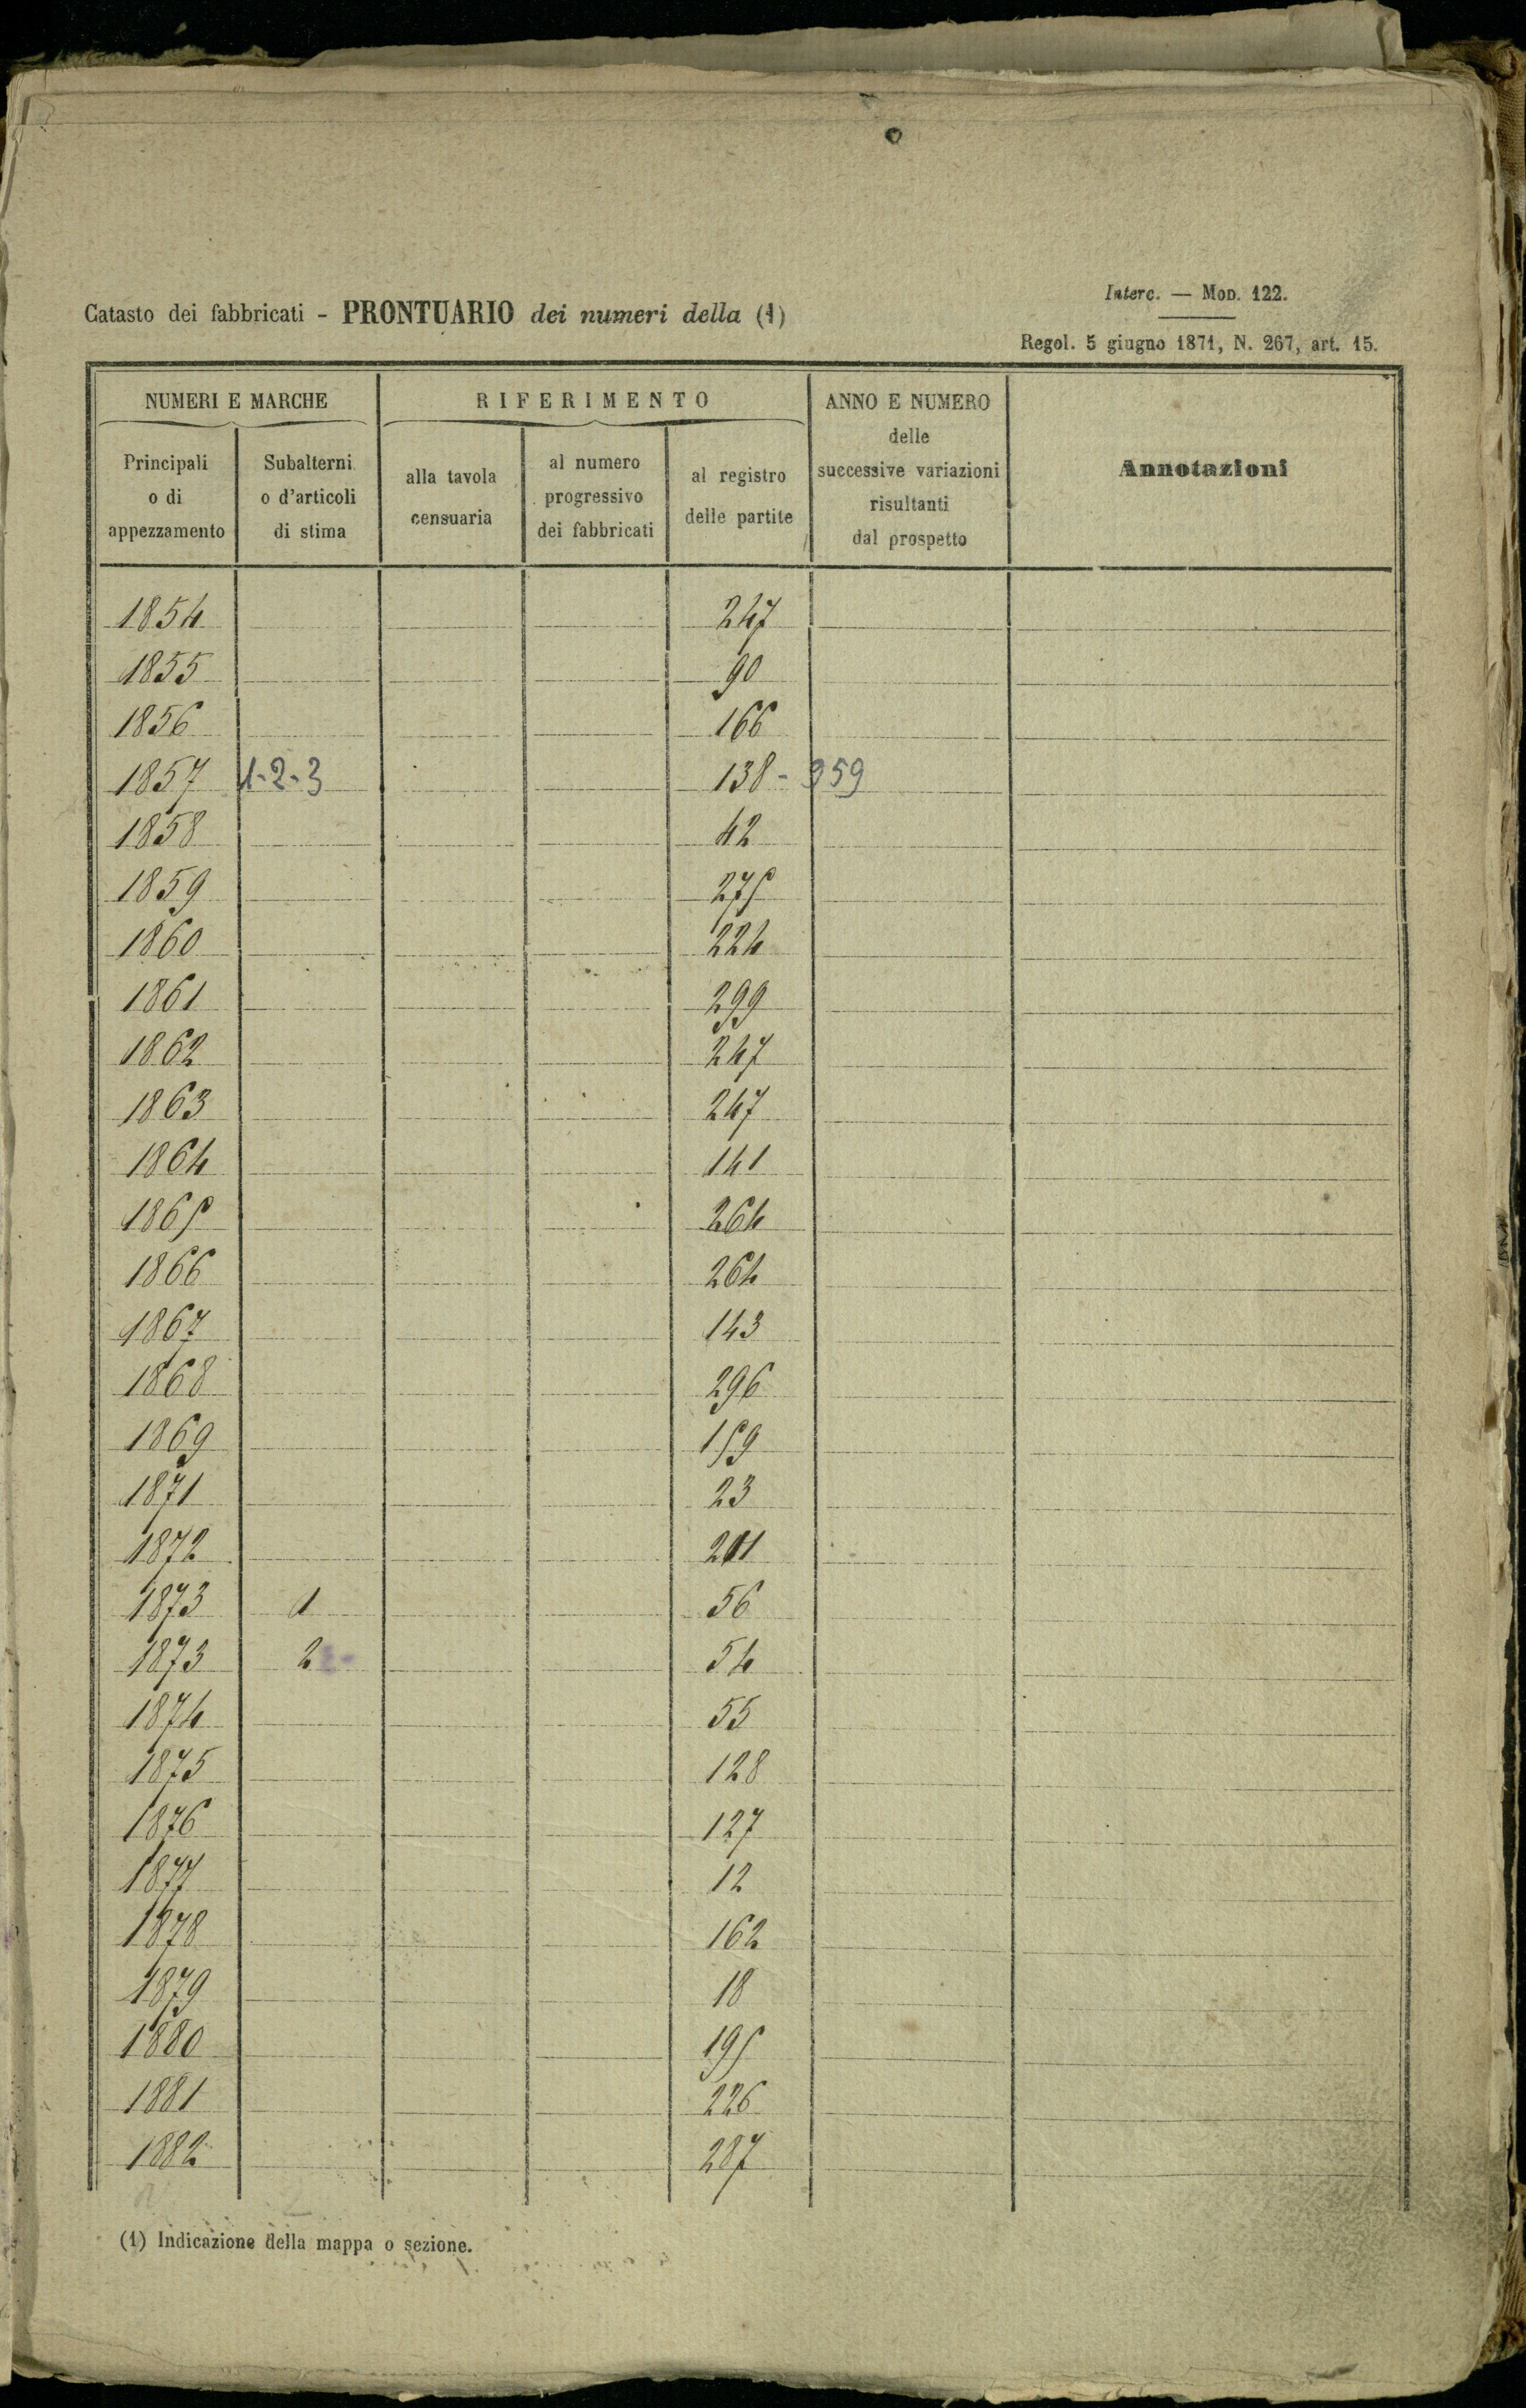 Interc. — Mod. 122.
Catasto dei fabbricati - PRONTUARIO dei numeri della (1)
Regol. 5 giugno 1871, N. 267, art. 15.
NUMERI E MARCHE
RIFERIMENTO
ANNO E NUMERO
delle
successive variazioni
risultanti
dal prospetto
Annotazioni
Principali
o di
appezzamento
Subalterni
o d'articoli
di stima
alla tavola
censuaria
al numero
progressivo
dei fabbricati
al registro
delle partite
1854 247
1855 90
1856 166
1857 1-2-3 138 - 959
1858 42
1859 275
1860 224
1861 299
1862 247
1863 247
1864 141
1865 264
1866 264
1867 143
1868 296
1869 159
1871 23
1872
1873 1 56
1873 2 54
1874 55
1875 128
1876 127
1877 12
1878 162
1879 18
1880 195
1881 226
1882 287
(1) Indicazione della mappa o sezione.